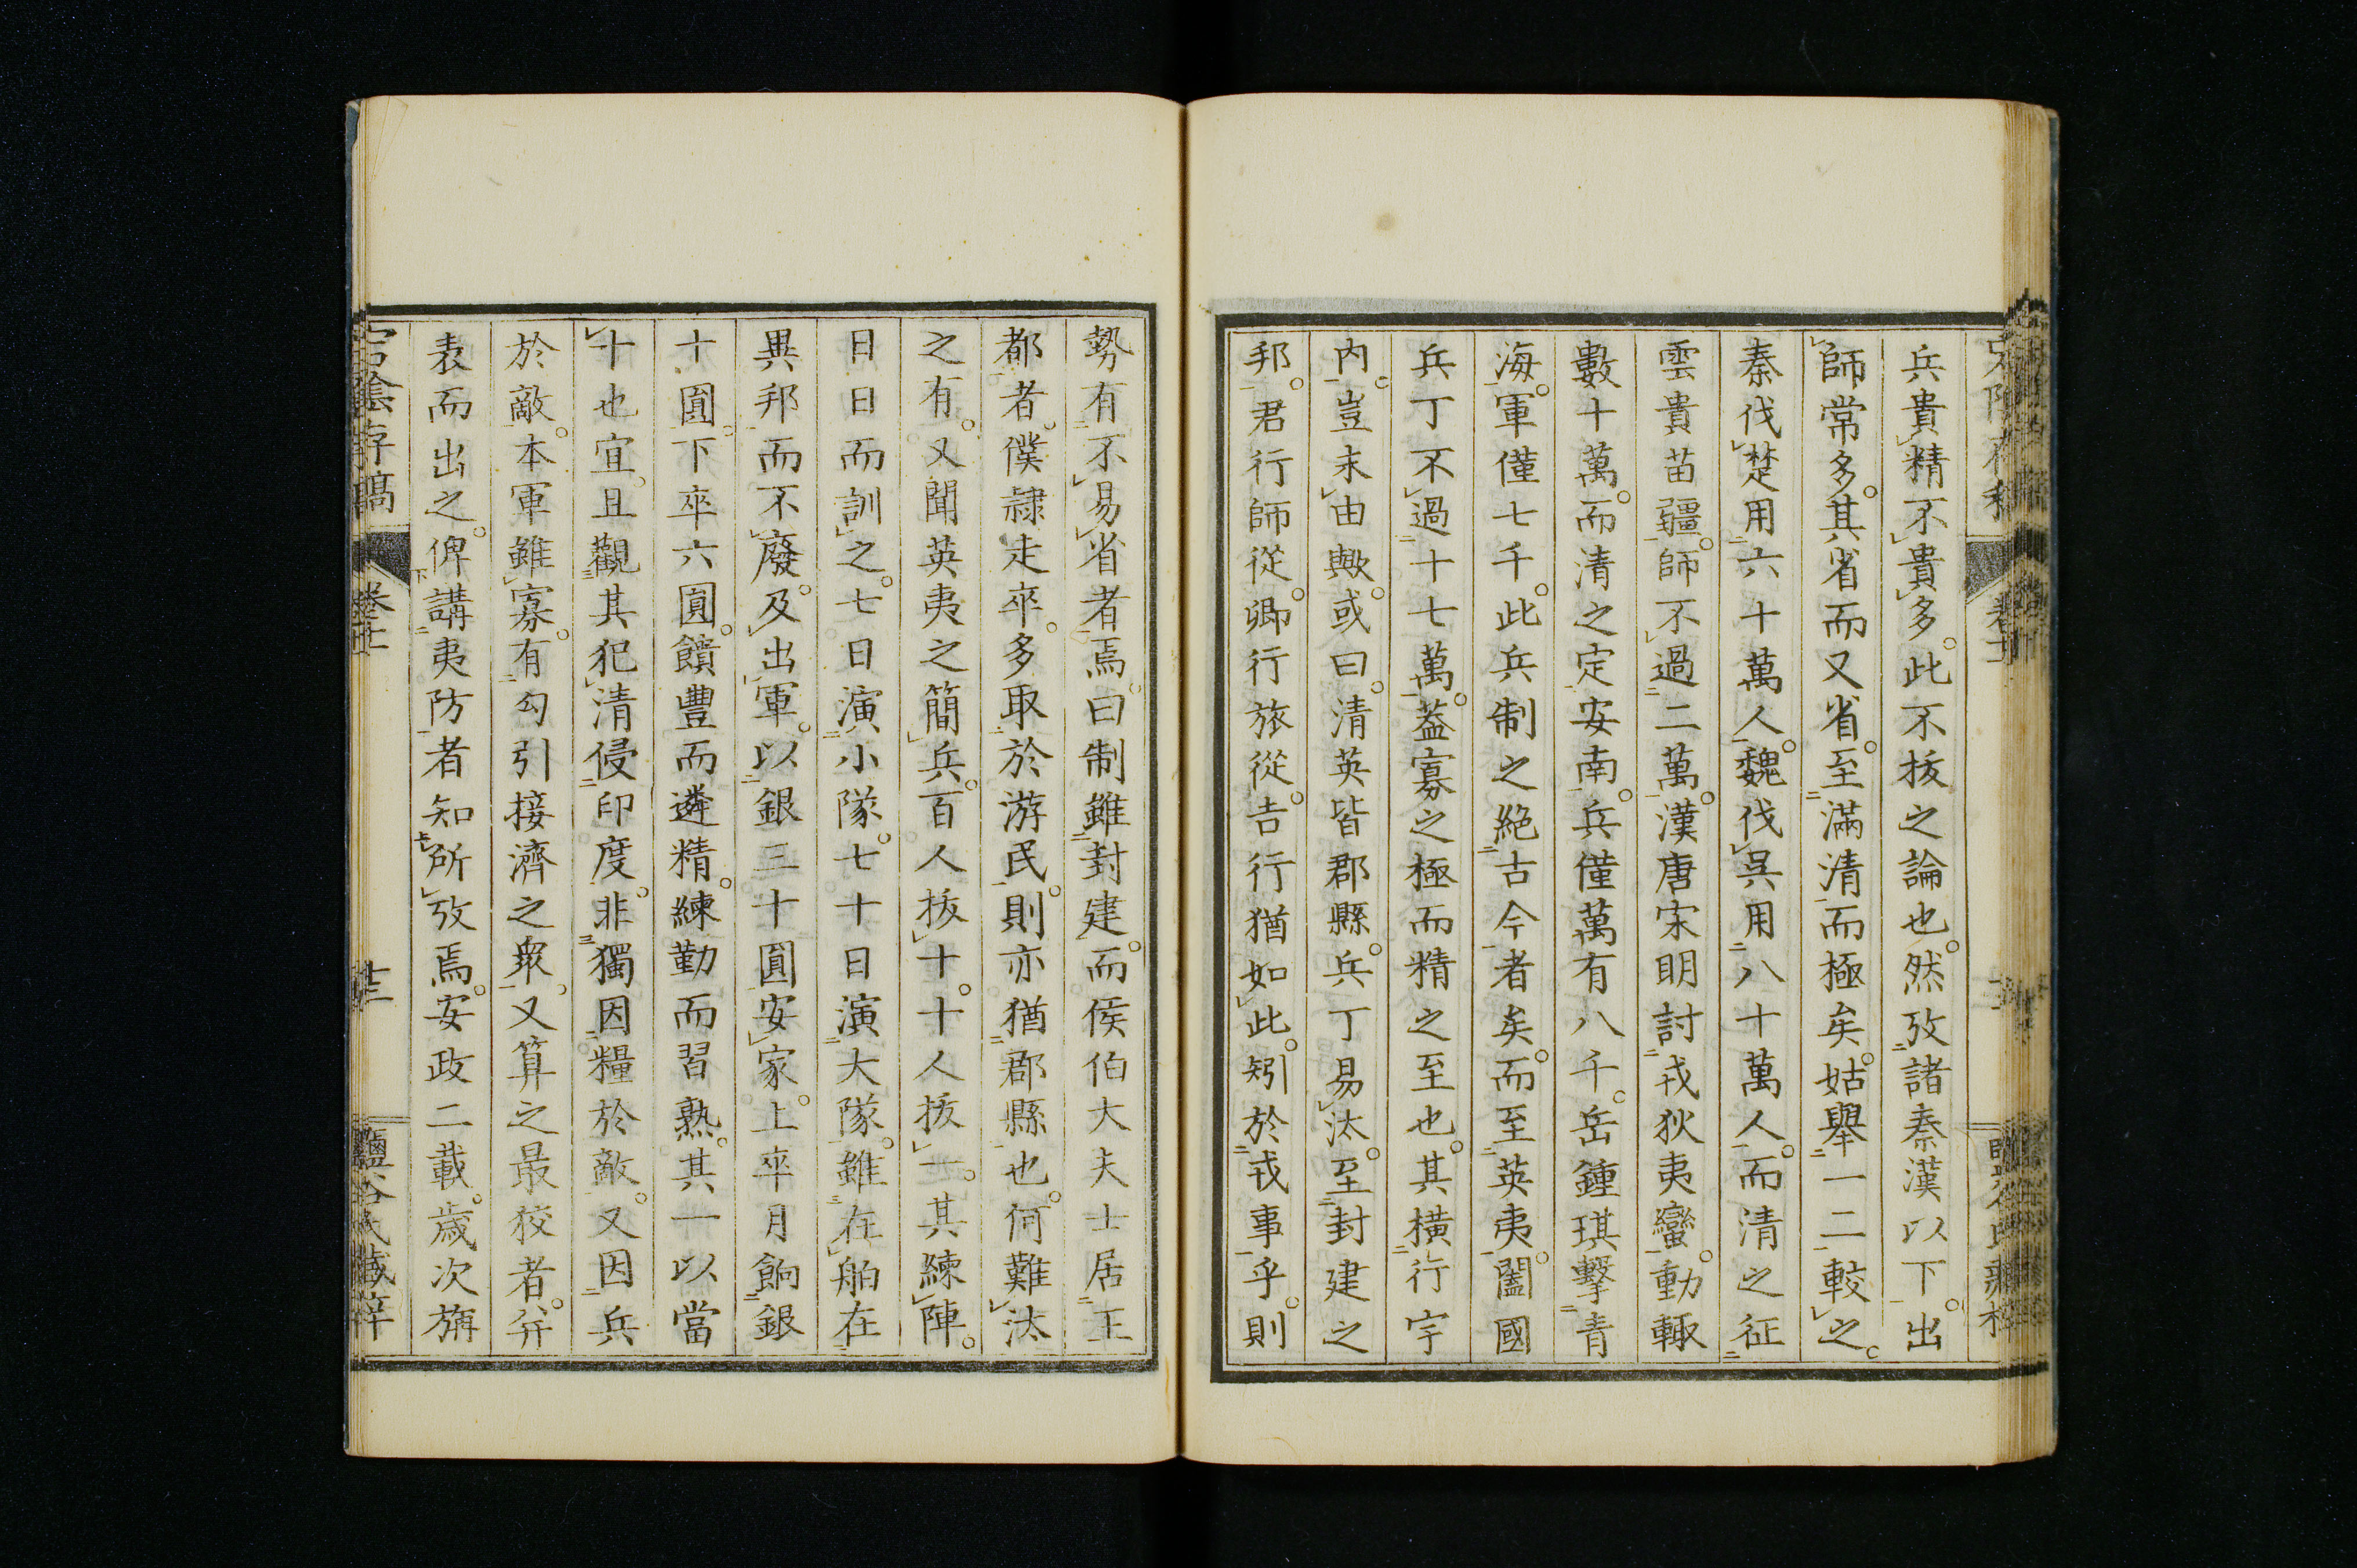 兵貴精不貴多。此不拔之論也。然攷諸秦漢以下。出
師常多。其省而又省。至滿清而極矣。姑舉一二較之。
秦伐楚用六十萬人。魏伐吳用八十萬人。而清之征
雲貴苗疆。師不過二萬。漢唐宋明討戎狄夷蠻。動輙
數十萬。而清之定安南。兵僅萬有八千。岳鍾琪擊青
海。軍僅七千。此兵制之絶古今者矣。而至英夷。闔國
兵丁不過十七萬。葢寡之極而精之至也。其橫行宇
內。豈未由歟。或曰。清英皆郡縣。兵丁易汰。至封建之
邦。君行師從。卿行旅從。吉行猶如此。矧於戎事乎。則
勢有不易省者焉。曰制雖封建。而侯伯大夫士居王
都者。僕隷走卒。多取於游民。則亦猶郡縣也。何難汰
之有。又聞英夷之簡兵。百人拔十。十人拔一。其練陣。
日日而訓之。七日演小隊。七十日演大隊。雖在舶在
異邦而不廢。及出軍。以銀三十圓安家。上卒月餉銀
十圓。下卒六圓。饋豐而遴精。練勤而習熟。其一以當
十也宜。且觀其犯清侵印度。非獨因糧於敵。又因兵
於敵。本軍雖寡。有勾引接濟之衆。又算之最狡者。并
表而出之。俾講夷防者知所攷焉。安政二載。歲次旃
宕陰存稿
卷十一
十三
鹽谷氏藏梓